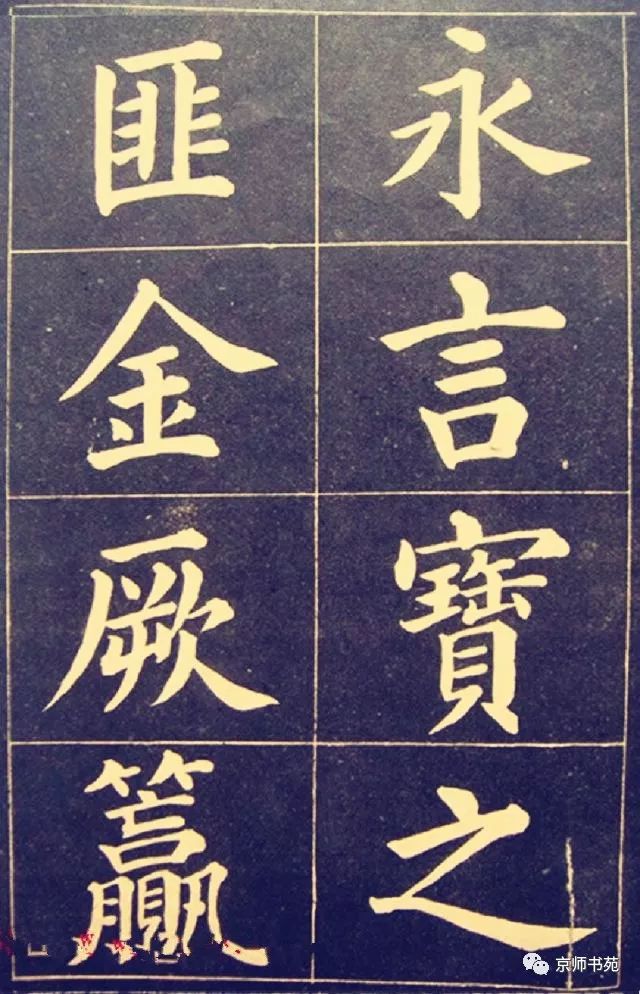 永言寶之
匪金厥籯
京师书苑